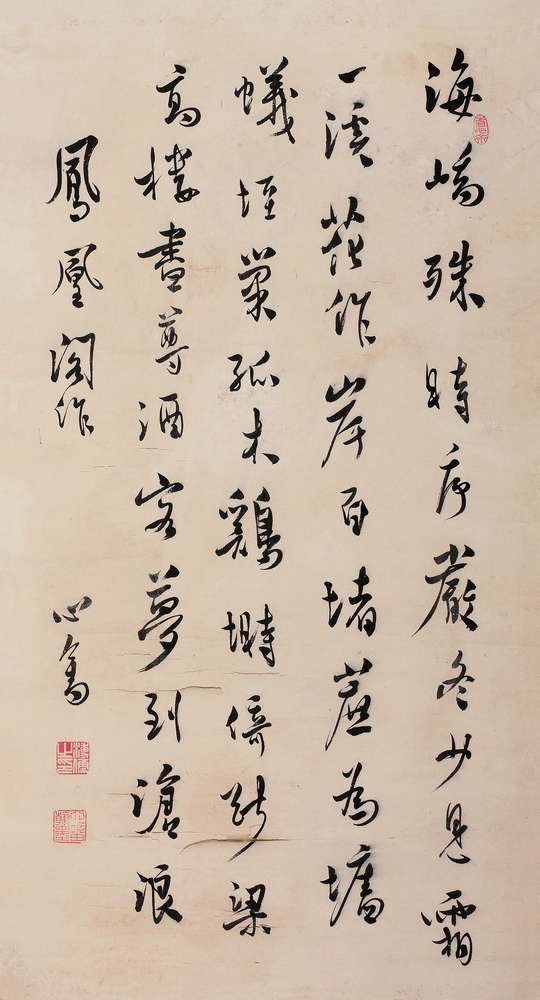 海嶠殊時序嚴冬少見霜
一溪花作岸百堵蔗為墉
蟻垤巢孤木鷄塒倚斷梁
高樓盡尊酒客夢到滄浪
鳳凰閣作
心畬